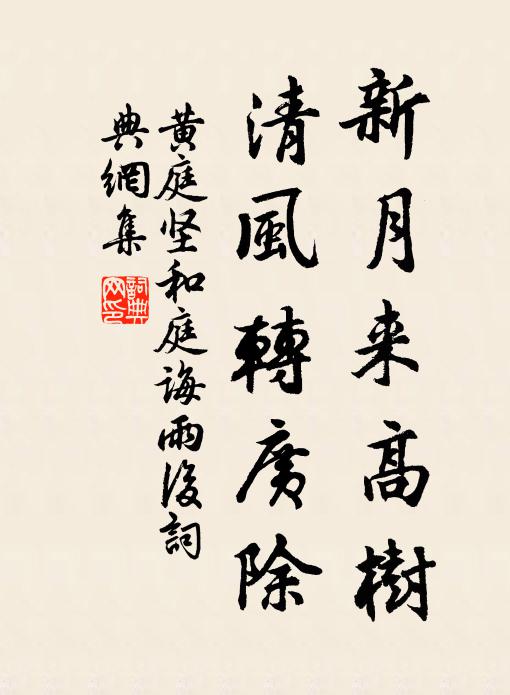 新月来高樹
清風轉廣除
黄庭坚和庭誨雨後詞
典網集
詞典网印